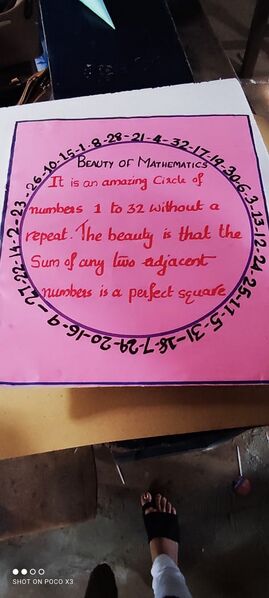 1-8-28-21-4-32-17-19-30-6-3-13-12-24-25-11-5-31-18-7-29-20-16-9-27-22-14-2-23-26-10-15-
BEAUTY OF MATHEMATICS
It is an amazing Circle of
numbers 1 to 32 without a
repeat. The beauty is that the
Sum of any two adjacent
numbers is a perfect square
SHOT ON POCO X3